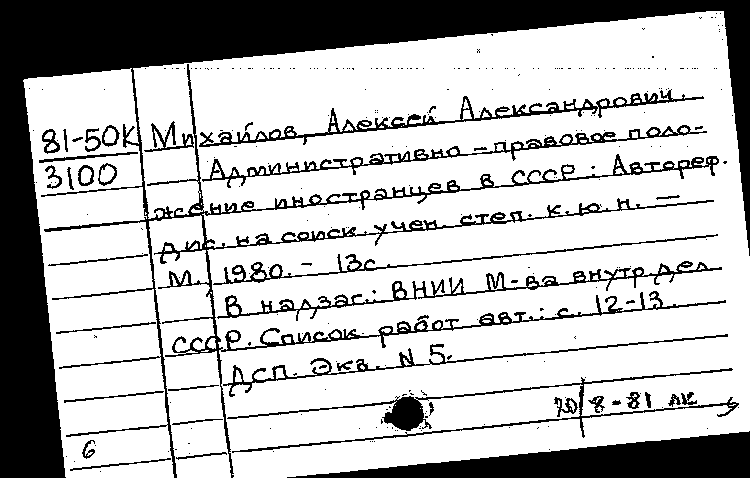 81-50К Михайлов, Алексей Александрович.
3100 Административно-правовое поло-
жение иностранцев в СССР: Автореф.
дис. на соиск. учен. степ. к.ю.н. —
М., 1980. - 13с.
В надзаг.: ВНИИ М-ва внутр.дел
СССР. Список работ авт.: с. 12-13.
ДСП. Экз. N 5.
8-81
6